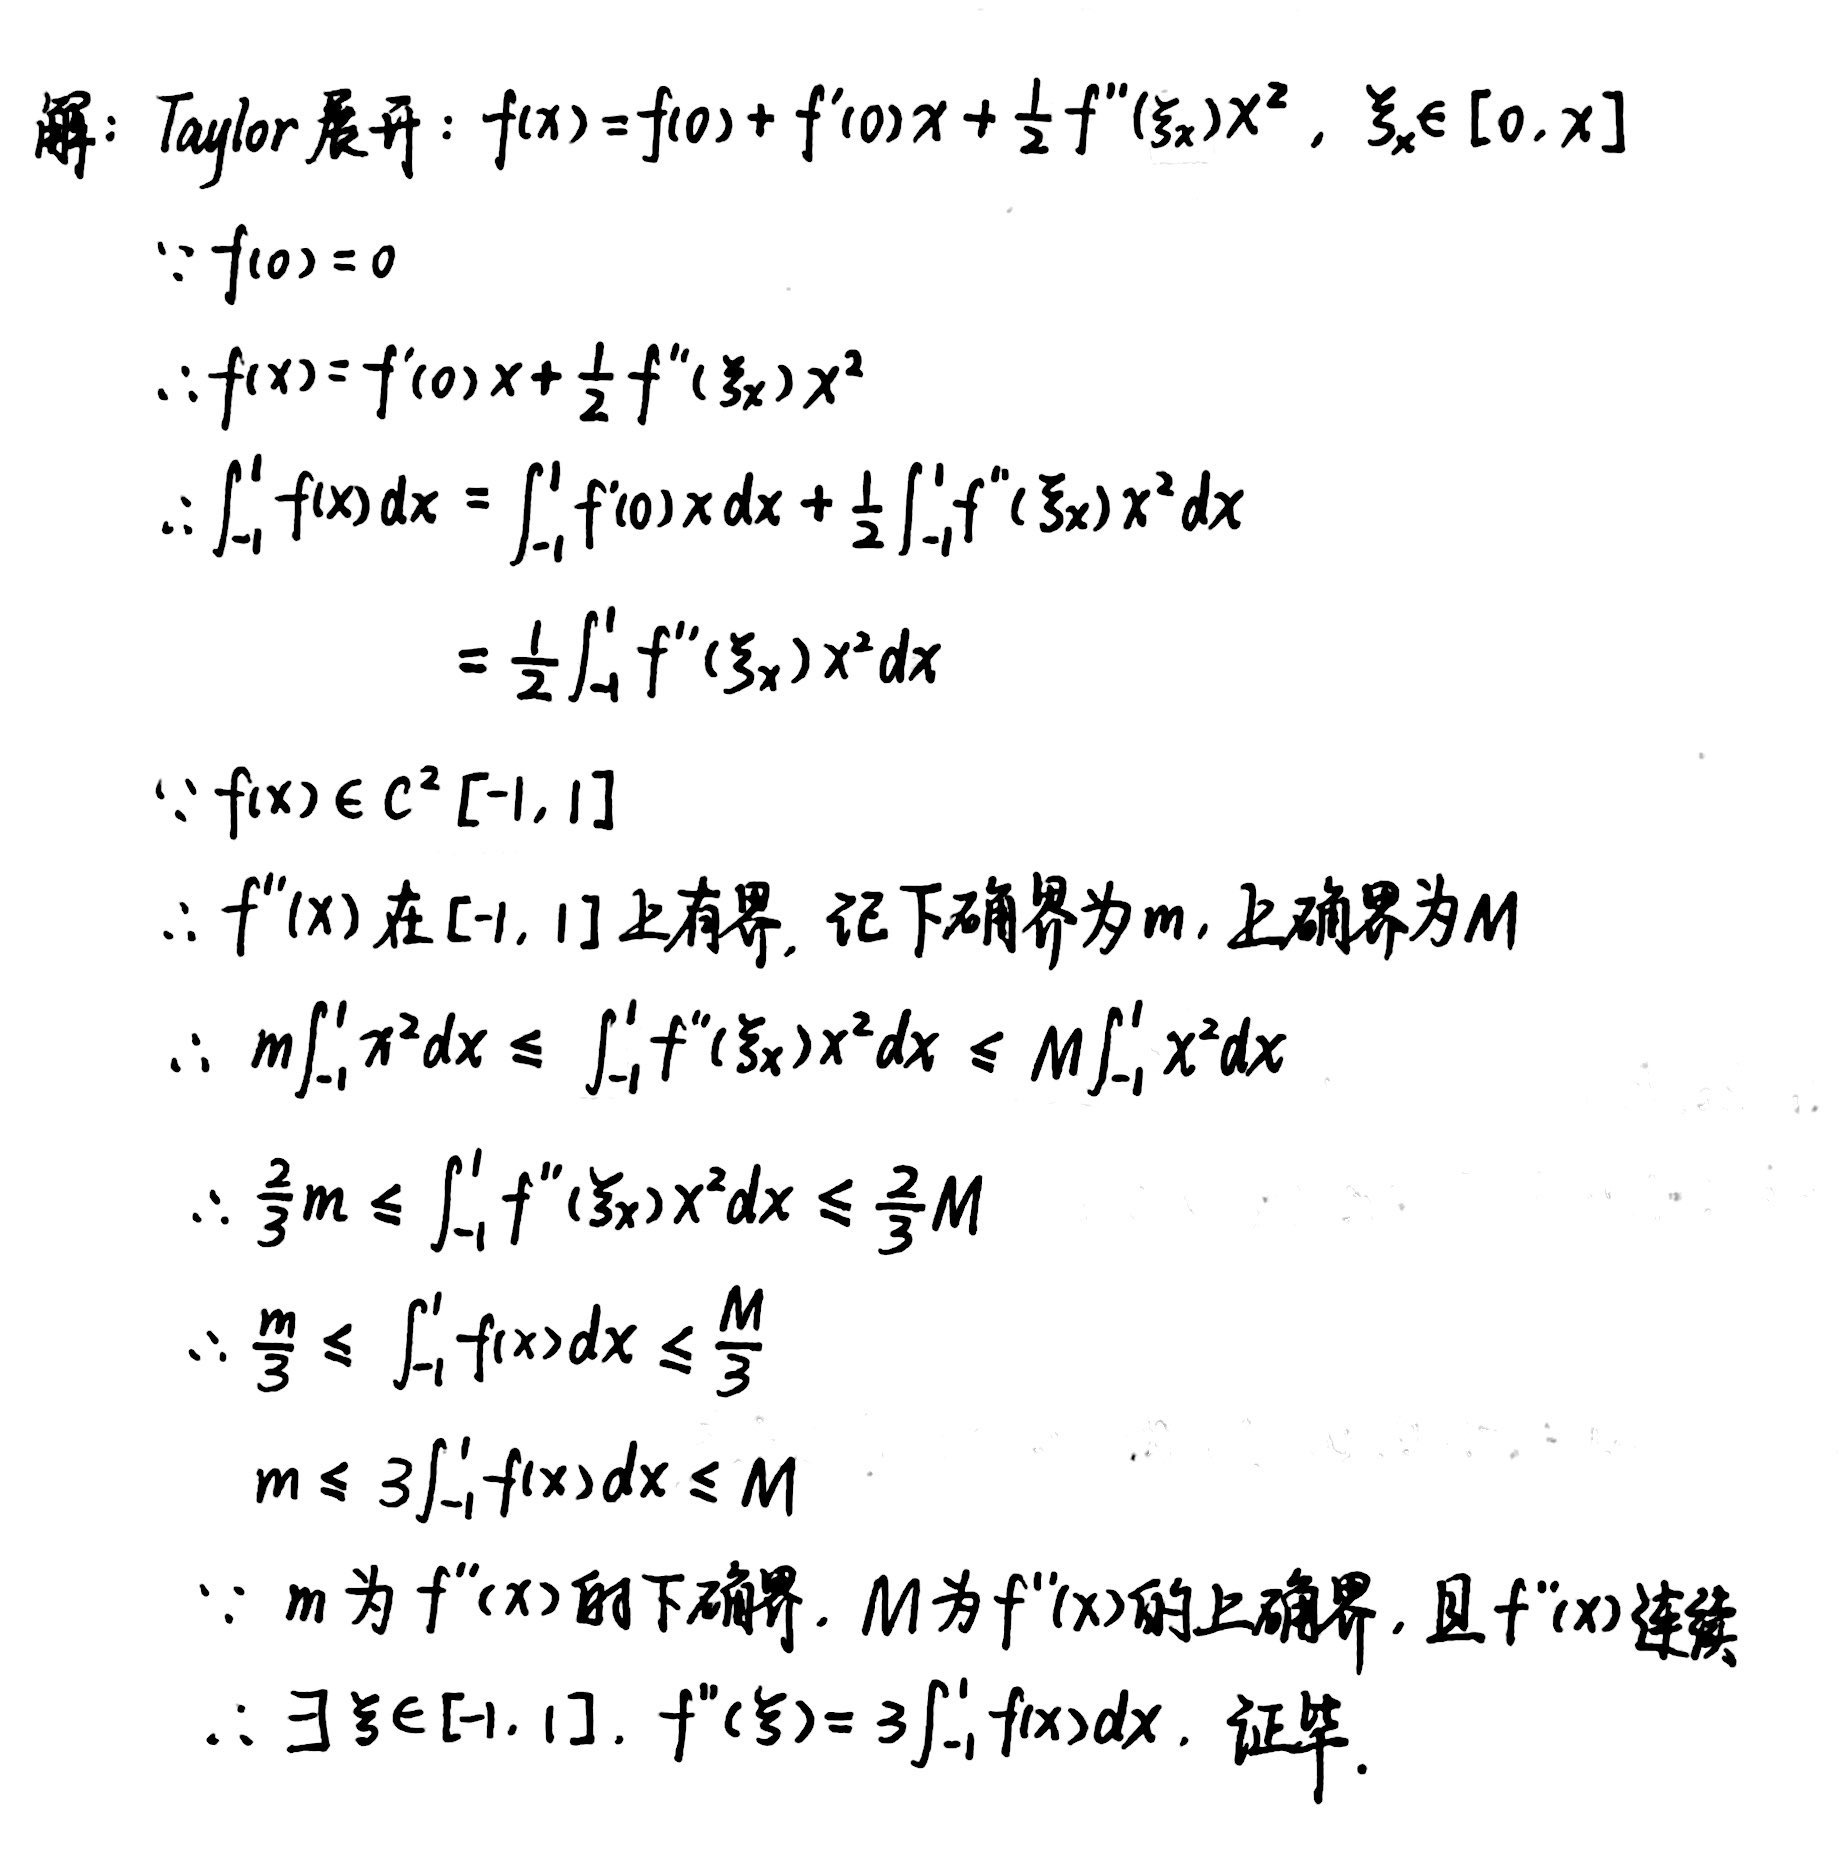 解: Taylor展开: f(x)=f(0)+f'(0)x+\frac{1}{2}f''(ξ_x)x^2, ξ_x∈[0,x]
∵ f(0)=0
∴ f(x)=f'(0)x+\frac{1}{2}f''(ξ_x)x^2
∴ ∫_{-1}^{1}f(x)dx = ∫_{-1}^{1}f'(0)xdx+\frac{1}{2}∫_{-1}^{1}f''(ξ_x)x^2dx
= \frac{1}{2}∫_{-1}^{1}f''(ξ_x)x^2dx
∵ f(x)∈C^2[-1,1]
∴ f''(x)在[-1,1]上有界, 记下确界为m, 上确界为M
∴ m∫_{-1}^{1}x^2dx ≤ ∫_{-1}^{1}f''(ξ_x)x^2dx ≤ M∫_{-1}^{1}x^2dx
∴ \frac{2}{3}m ≤ ∫_{-1}^{1}f''(ξ_x)x^2dx ≤ \frac{2}{3}M
∴ \frac{m}{3} ≤ ∫_{-1}^{1}f(x)dx ≤ \frac{M}{3}
m ≤ 3∫_{-1}^{1}f(x)dx ≤ M
∵ m为f''(x)的下确界, M为f''(x)的上确界, 且f''(x)连续
∴ ∃ξ∈[-1,1], f''(ξ)=3∫_{-1}^{1}f(x)dx. 证毕.